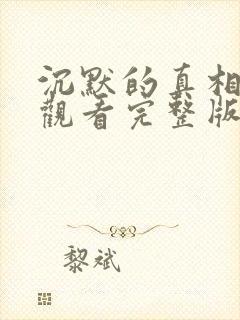 沉默的真相
觀看完整版
黎斌